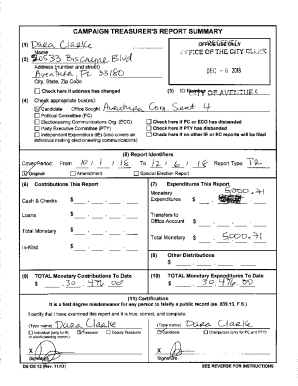 CAMPAIGN TREASURER'S REPORT SUMMARY
(1) Dara Clarke
Name
(2) 20533 Biscayne Blvd
Address (number and street)
Aventura, FL 33180
City, State, Zip Code
Check here if address has changed
OFFICE USE ONLY
OFFICE OF THE CITY CLERK
DEC - 6 2018
CITY OF AVENTURA
(3) ID Number:
(4) Check appropriate box(es):
Candidate Office Sought: Aventura Com. Seat 4
Political Committee (PC)
Electioneering Communications Org. (ECO)
Party Executive Committee (PTY)
Independent Expenditure (IE) (also covers an individual making electioneering communications)
Check here if PC or ECO has disbanded
Check here if PTY has disbanded
Check here if no other IE or EC reports will be filed
(5) Report Identifiers
Cover Period: From 10 / 1 / 18 To 12 / 6 / 18 Report Type: TR
Original Amendment Special Election Report
(6) Contributions This Report
Cash & Checks $
Loans $
Total Monetary $
In-Kind $
(7) Expenditures This Report
Monetary
Expenditures $ 5000.71
Transfers to
Office Account $
Total Monetary $ 5000.71
(8) Other Distributions
$
(9) TOTAL Monetary Contributions To Date
$ 30,476.00
(10) TOTAL Monetary Expenditures To Date
$ 30,476.00
(11) Certification
It is a first degree misdemeanor for any person to falsify a public record (ss. 839.13, F.S.)
I certify that I have examined this report and it is true, correct, and complete:
(Type name) Dara Clarke
Individual (only for IE or electioneering comm.) Treasurer Deputy Treasurer
X
Signature
(Type name) Dara Clarke
Candidate Chairperson (only for PC and PTY)
X
Signature
DS-DE 12 (Rev. 11/13)
SEE REVERSE FOR INSTRUCTIONS